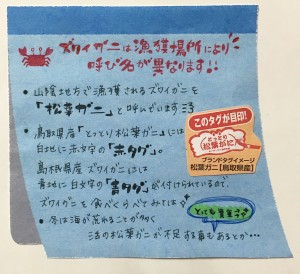 ズワイガニは漁獲場所により
呼び名が異なります!!
●山陰地方で漁獲されるズワイガニを
「松葉ガニ」と呼んでいます
●鳥取県産「とっとり松葉ガニ」には
白地に赤文字の「赤タグ」。
島根県産ズワイガニには
青地に白文字の「青タグ」が付けられているので、
ズワイガニを食べくらべてみては
●冬は海が荒れることが多く
活の松葉ガニが不足する事もあるとか…
このタグが目印!
とっとり
松葉がに
ブランドタグイメージ
松葉ガニ【鳥取県産】
とても貴重